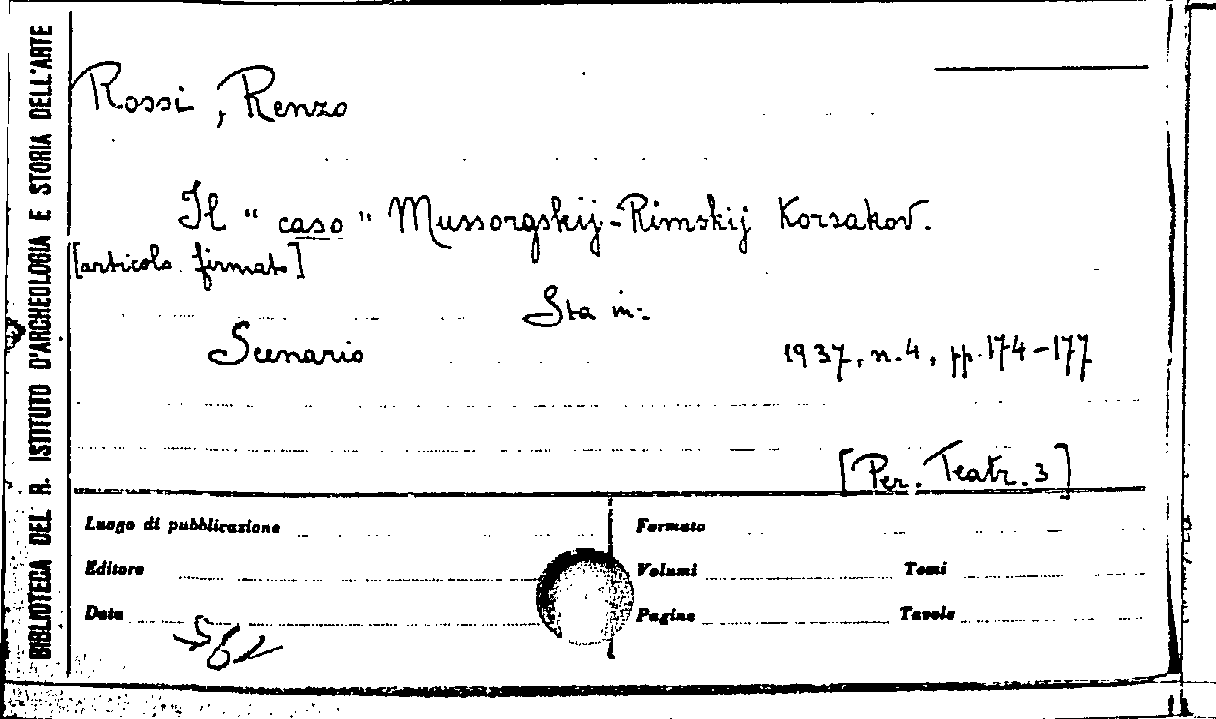 BIBLIOTECA DEL R. ISTITUTO D'ARCHEOLOGIA E STORIA DELL'ARTE
Rossi, Renzo
Il "caso" Mussorgskij-Rimskij Korsakov.
[articolo firmato]
Sta in:
Scenario 1937, n.4, pp.174-177
[Per. Teatr. 3]
Luogo di pubblicazione
Editore
Data
Formato
Volumi Tomi
Pagine Tavole